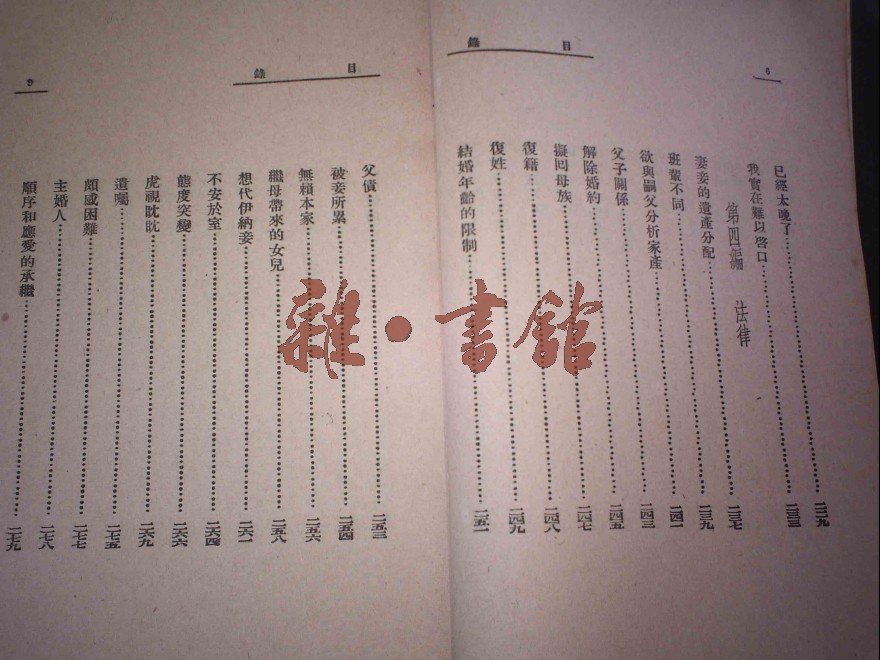 目錄
8
已經太晚了……二二九
我實在難以啓口……二三三
第四編 法律
妻妾的遺產分配……二三七
班輩不同……二三九
欲與嗣父分析家產……二四一
父子關係……二四三
解除婚約……二四五
擬同母族……二四七
復籍……二四八
復姓……二四九
結婚年齡的限制……二五一
目錄
9
父債……二五三
被妾所累……二五四
無賴本家……二五六
繼母帶來的女兒……二五八
想代伊納妾……二六一
不安於室……二六四
態度突變……二六六
虎視眈眈……二六九
遺囑……二七五
頗感困難……二七七
主婚人……二七八
順序和應愛的承繼……二七九
雜·書館